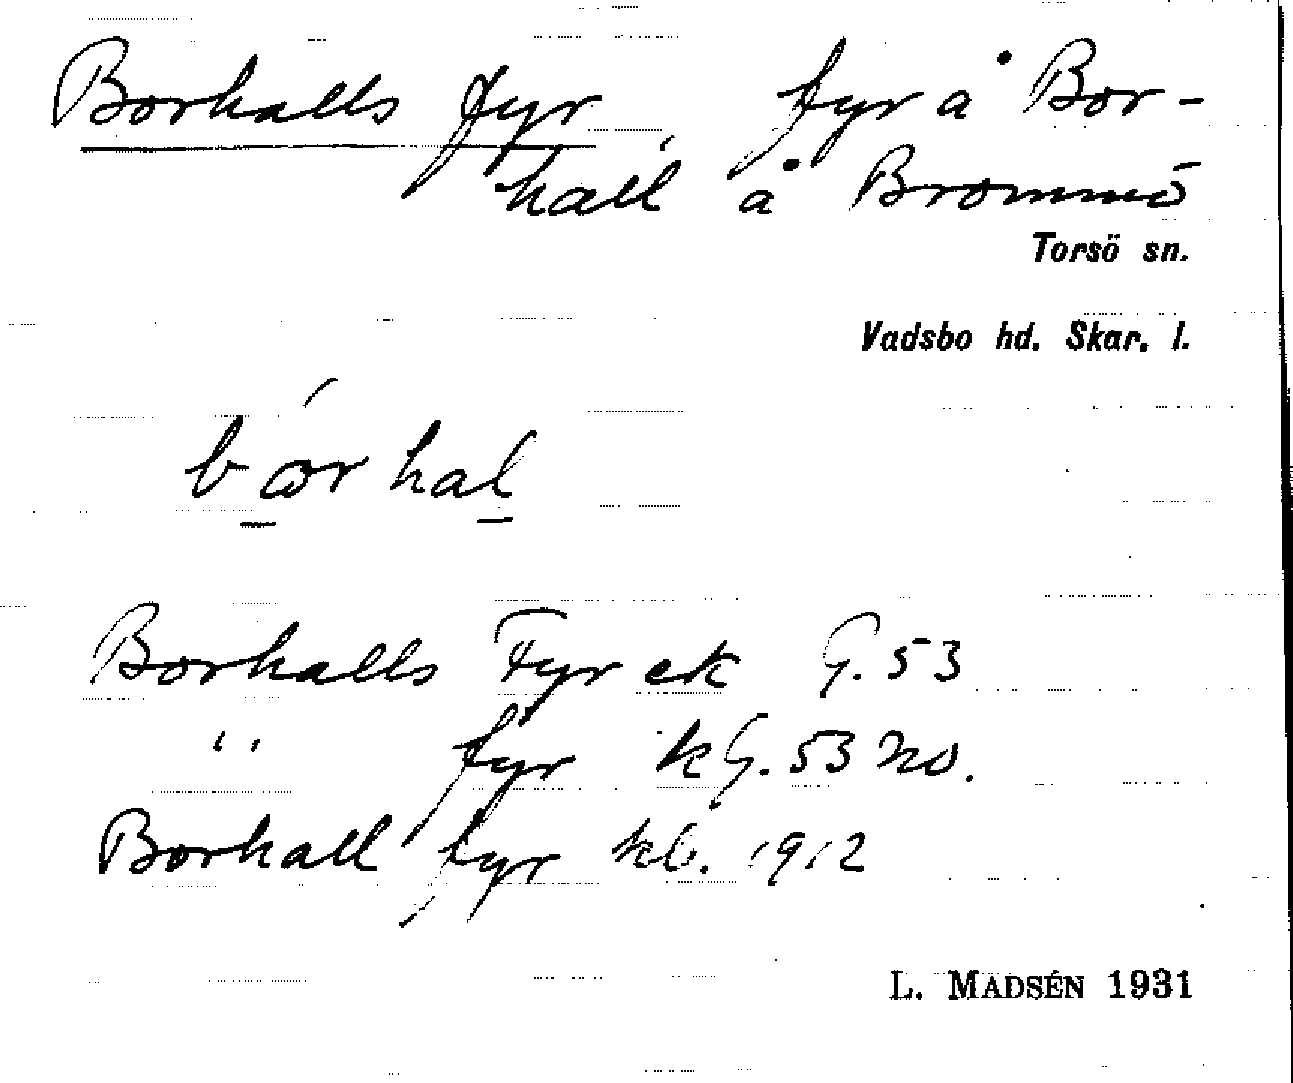 Borhalls fyr, fyr å Bor-
hall å Brommö
Torsö sn.
Vadsbo hd. Skar. l.
bǿrhal
Borhalls Fyr ek G. 53
" fyr kG. 53 no.
Borhall fyr kb. 1912
L. MADSÉN 1931